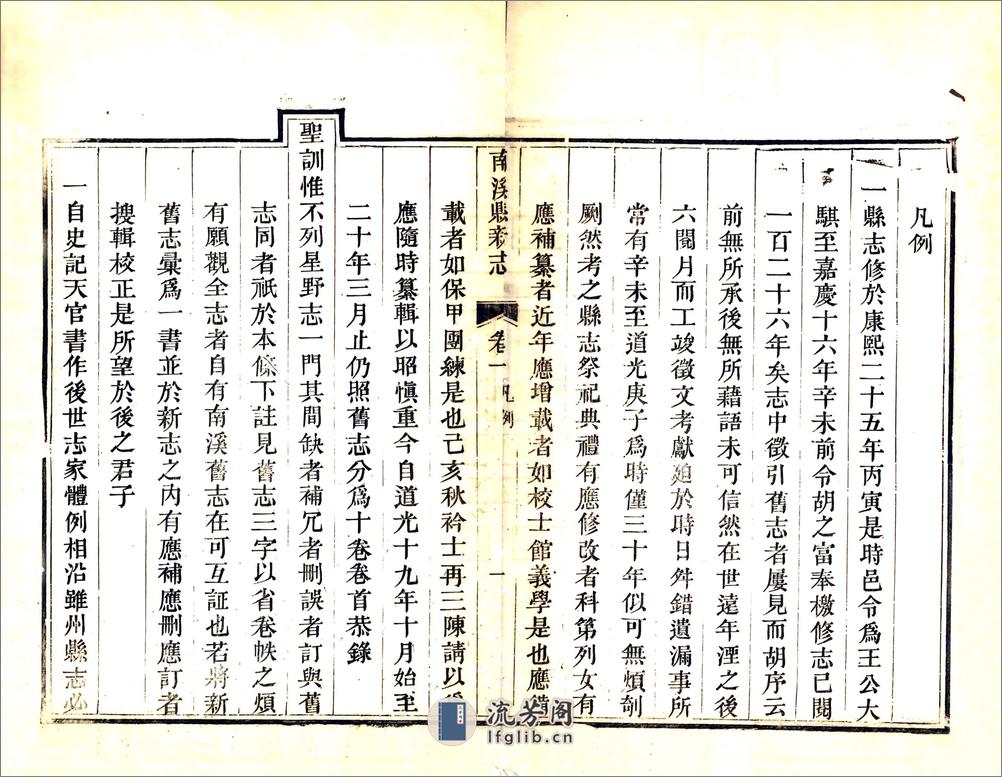 凡例
一縣志修於康熙二十五年丙寅是時邑令爲王公大
騏至嘉慶十六年辛未前令胡之富奉檄修志已閱
一百二十六年矣志中徵引舊志者屢見而胡序云
前無所承後無所藉語未可信然在世遠年湮之後
六閱月而工竣徵文考獻廹於時日舛錯遺漏事所
常有辛未至道光庚子爲時僅三十年似可無煩剞
劂然考之縣志祭祀典禮有應修改者科第列女有
應補纂者近年應增載者如校士館義學是也應備
南溪縣新志 卷一 凡例 一
載者如保甲團練是也己亥秋衿士再三陳請以爲
應隨時纂輯以昭愼重今自道光十九年十月始至
二十年三月止仍照舊志分爲十卷卷首恭錄
聖訓惟不列星野志一門其間缺者補冗者刪誤者訂與舊
志同者祇於本條下註見舊志三字以省卷帙之煩
有願觀全志者自有南溪舊志在可互証也若將新
舊志彙爲一書並於新志之內有應補應刪應訂者
搜輯校正是所望於後之君子
一自史記天官書作後世志家體例相沿雖州縣志必
流芳閣
lfglib.cn